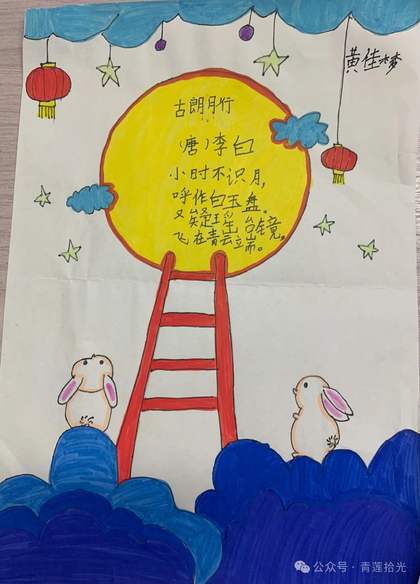 黄佳
古朗月行
(唐)李白
小时不识月,
呼作白玉盘。
又疑瑶台镜,
飞在青云端。
公众号·青莲拾光